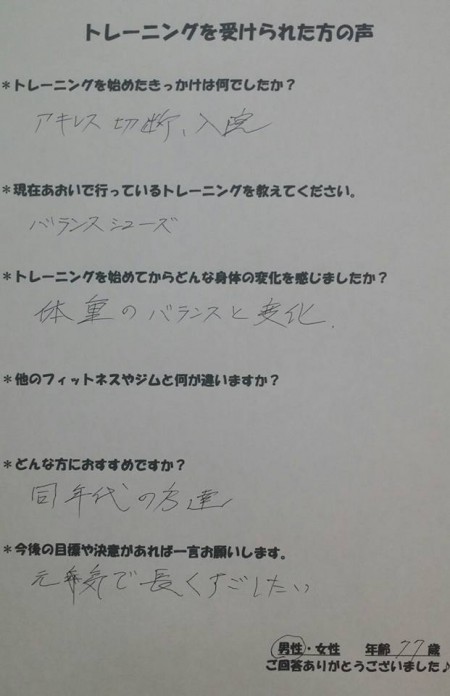 トレーニングを受けられた方の声
*トレーニングを始めたきっかけは何でしたか?
アキレス切断、入院
*現在あおいで行っているトレーニングを教えてください。
バランスシューズ
*トレーニングを始めてからどんな身体の変化を感じましたか?
体重のバランスと変化.
*他のフィットネスやジムと何が違いますか?
*どんな方におすすめですか?
同年代の方達
*今後の目標や決意があれば一言お願いします。
元気で長くすごしたい
男性・女性 年齢 77 歳
ご回答ありがとうございました♪